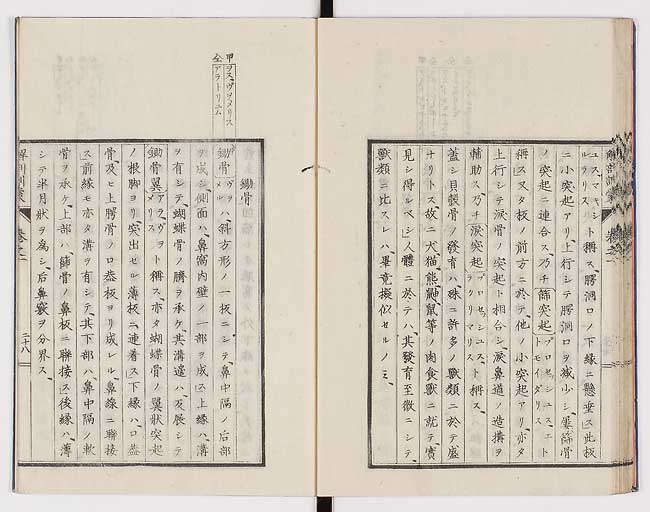 ユス、マキシ
ルラリス
ト稱ス、腭洞口ノ下縁ニ懸垂ス」此板
ニ小突起アリ、上行シテ腭洞口ヲ減少シ、篩骨
ノ突起ニ連合ス、乃チ篩突起
プロセシュス、エト
モイダリス
ト
稱ス」又タ板ノ前方ニ於テ、他ノ小突起アリ、亦タ
上行シテ、淚骨ノ突起ト相合シ、淚鼻道ノ造搆ヲ
輔助ス、乃チ淚突起
プロセシュス、
ラクリマリス
ト稱ス、
蓋シ貝殼骨ノ發育ハ、殊ニ許多ノ獸類ニ於テ盛
ナリトス、故ニ犬猫、熊鼬、鼠等ノ肉食獸ニ就テ、實
見シ得ルベシ」人體ニ於テハ、其發育至微ニシテ、
獸類ニ比スレハ、畢竟擬似セルノミ、
甲 ヲス、ヴヲメリス
仝 アラトリニム
鋤骨
鋤骨
ヴヲ
メル
ハ、斜方形ノ一板ニシテ、鼻中隔ノ后部
ヲ成シ、側面ハ、鼻窩內壁ノ一部ヲ成ス」上縁ハ、溝
ヲ有シテ、蝴蝶骨ノ
ヲ承ケ、其溝邊ハ、反展シテ
鋤骨翼
アラ、ヴヲ
メリス
ト稱ス、亦タ蝴蝶骨ノ翼狀突起
ノ根脚ヨリ、突出セル薄板ニ連着ス」下縁ハ、口蓋
骨、及ヒ上腭骨ノ口蓋板ヨリ成レル、鼻縁ニ聯接
ス」前縁モ亦タ溝ヲ有シテ、其下部ハ、鼻中隔ノ軟
骨ヲ承ケ、上部ハ、篩骨ノ鼻板ニ聯接ス」後縁ハ、薄
シテ半月狀ヲ爲シ、后鼻竅ヲ分界ス、
卷之二
二十八